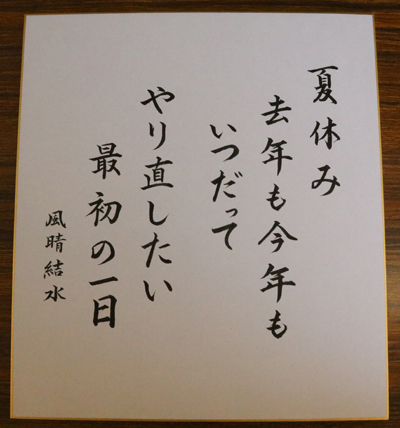 夏休み
去年も今年も
いつだって
やり直したい
最初の一日
風晴結水